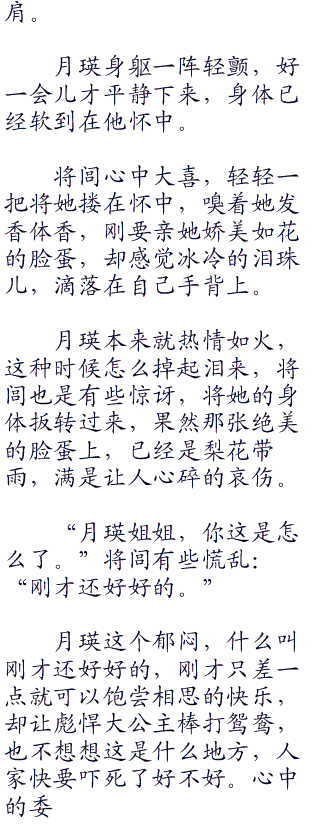 肩。
月瑛身躯一阵轻颤，好
一会儿才平静下来，身体已
经软到在他怀中。
将闾心中大喜，轻轻一
把将她搂在怀中，嗅着她发
香体香，刚要亲她娇美如花
的脸蛋，却感觉冰冷的泪珠
儿，滴落在自己手背上。
月瑛本来就热情如火，
这种时候怎么掉起泪来，将
闾也是有些惊讶，将她的身
体扳转过来，果然那张绝美
的脸蛋上，已经是梨花带
雨，满是让人心碎的哀伤。
“月瑛姐姐，你这是怎
么了。”将闾有些慌乱：
“刚才还好好的。”
月瑛这个郁闷，什么叫
刚才还好好的，刚才只差一
点就可以饱尝相思的快乐，
却让彪悍大公主棒打鸳鸯，
也不想想这是什么地方，人
家快要吓死了好不好。心中
的委